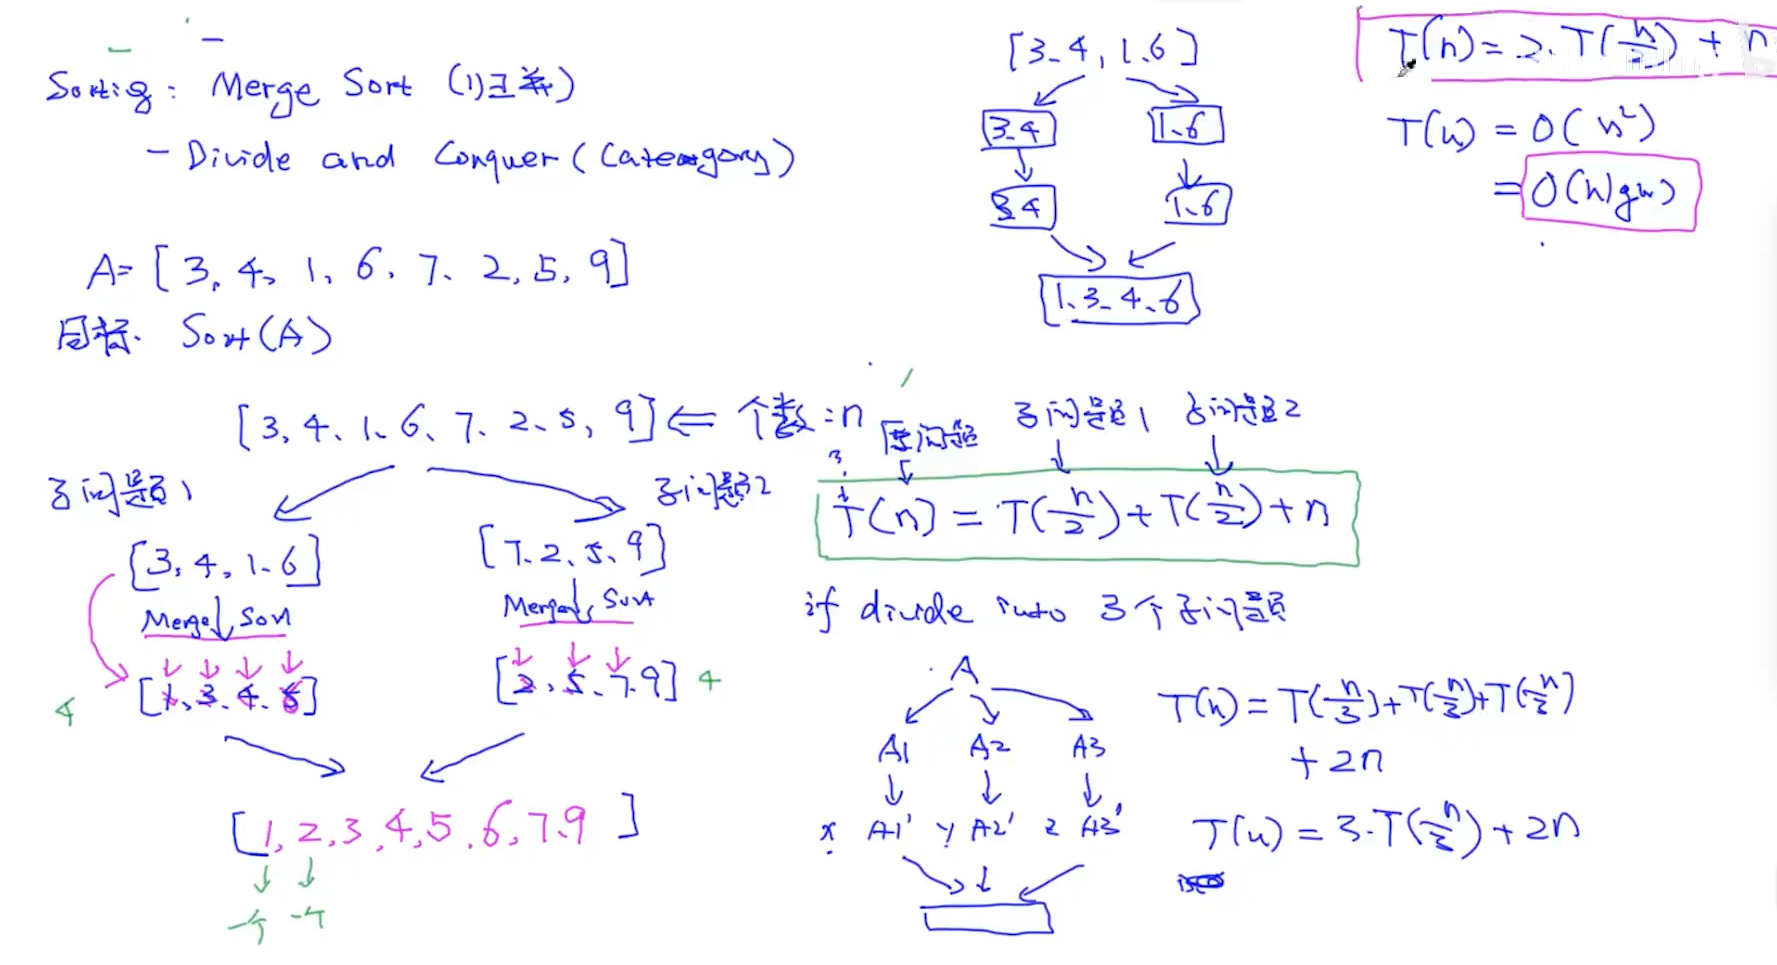 Sorting: Merge Sort (归并)
- Divide and Conquer (Category)
A= [3, 4, 1, 6, 7, 2, 5, 9]
目标. Sort(A)
[3, 4, 1, 6, 7, 2, 5, 9] ⇐ 个数:n
子问题1
子问题2
[3, 4, 1, 6]
[7, 2, 5, 9]
Merge Sort
Merge Sort
[1, 3, 4, 6]
4
[2, 5, 7, 9] 4
[1, 2, 3, 4, 5, 6, 7, 9]
一个 一个
[3, 4, 1, 6]
3, 4
1, 6
3, 4
1, 6
1, 3, 4, 6
T(n) = 2·T(n/2) + n
T(n) = O(n²)
= O(nlgn)
原问题 子问题1 子问题2
T(n) = T(n/2) + T(n/2) + n
if divide into 3个子问题
A
A1 A2 A3
x A1' y A2' z A3'
T(n) = T(n/3) + T(n/3) + T(n/3)
+ 2n
T(n) = 3·T(n/3) + 2n